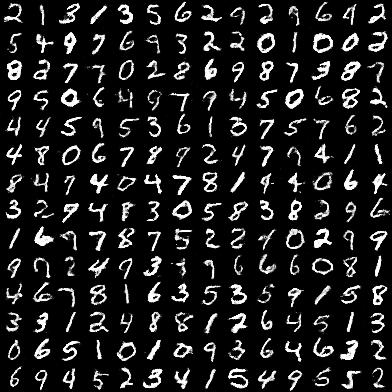 2 1 3 1 3 5 6 2 9 2 9 6 4 2
5 4 9 7 6 9 3 2 2 0 1 0 0 2
8 2 7 7 0 2 8 6 9 8 7 3 8 7
9 5 0 6 4 9 7 9 4 5 0 6 8 2
4 4 5 9 5 3 6 1 3 7 5 7 6 2
4 8 0 6 7 8 9 2 4 7 9 4 1 1
8 4 7 4 0 4 7 8 1 9 4 0 6 4
3 2 9 4 8 3 0 5 8 3 8 2 9 6
1 6 9 7 8 7 5 2 2 4 0 2 9 9
9 7 2 4 9 3 9 6 6 6 0 8 1
4 6 7 8 1 6 3 5 3 5 9 1 5 8
3 3 1 2 4 8 8 1 2 6 4 5 1 3
0 6 5 1 0 1 0 9 3 6 4 6 3 2
6 9 4 5 2 3 4 1 5 4 9 5 5 2